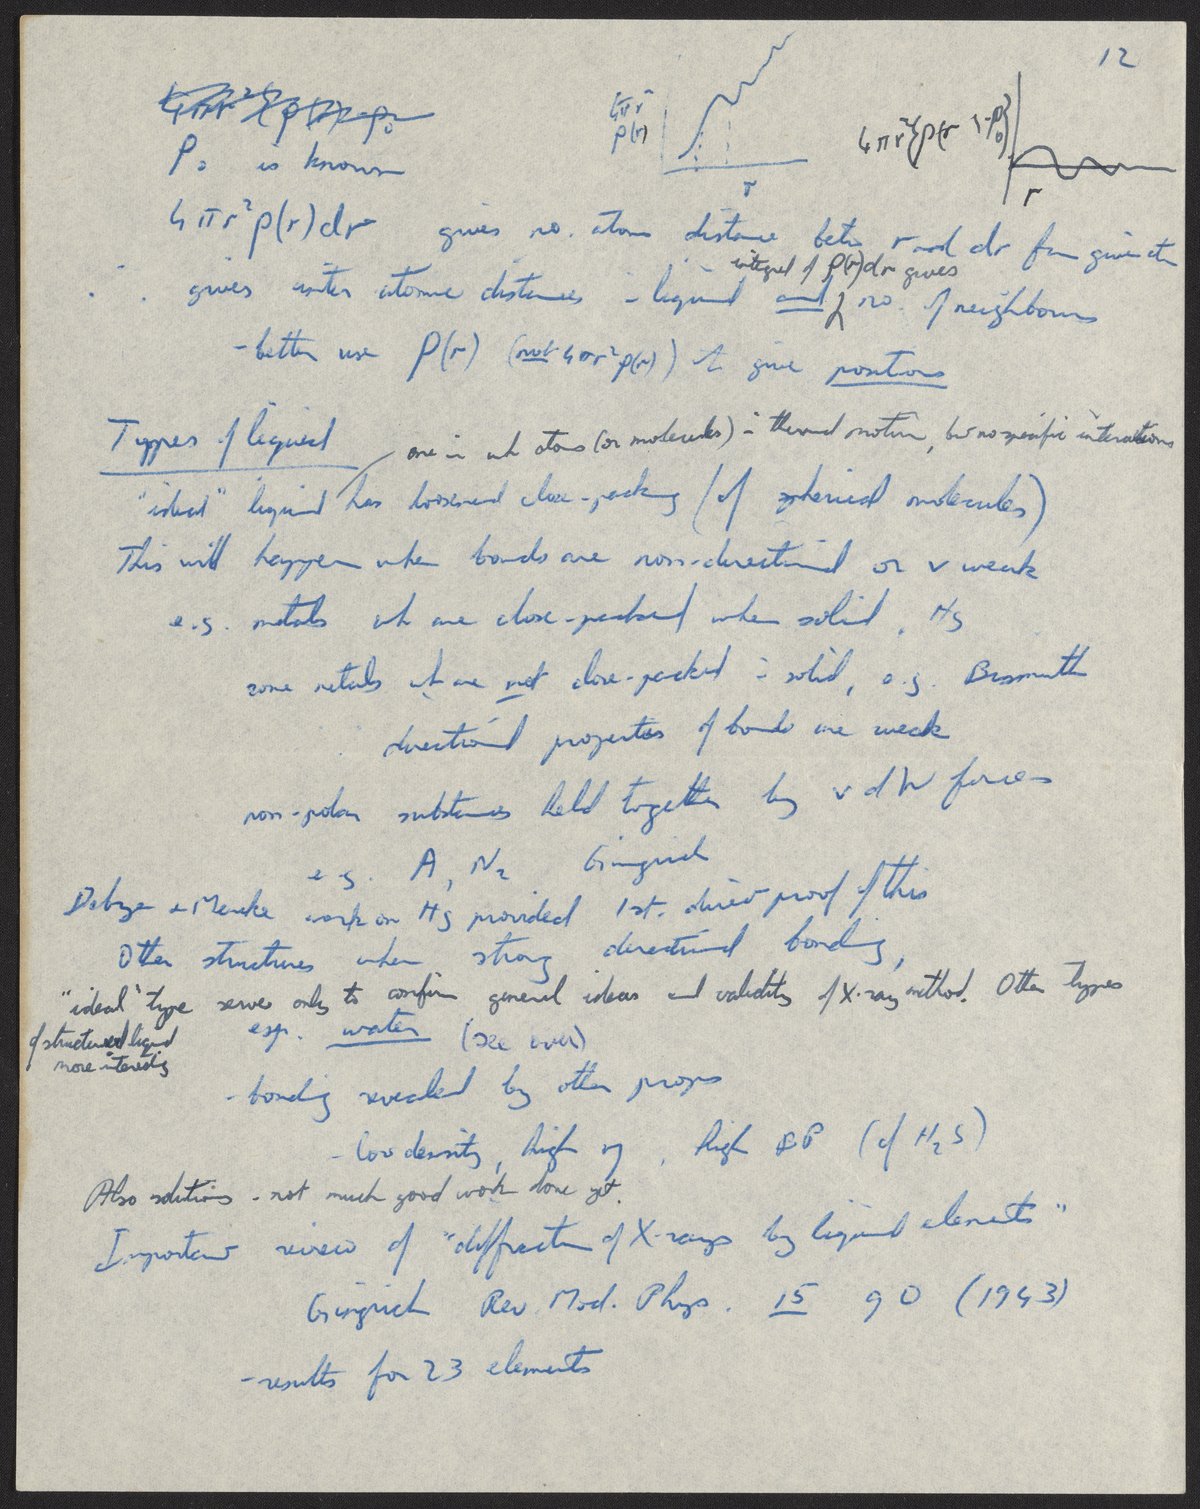 12
4πr²{ρ(r)-ρ₀
4πr²
ρ(r)
r
4πr²{ρ(r)-ρ₀}
r
ρ₀ is known
4πr²ρ(r)dr gives no. atoms distance betw r and dr from given atm
∴ gives inter atomic distances in liquid and no. of neighbours
integral of ρ(r)dr gives
- better use ρ(r) (not 4πr²ρ(r)) to give positions
Types of liquid
one in wh atoms (or molecules) in thermal motion, but no specific interactions
"ideal" liquid has loosened close-packing (of spherical molecules)
This will happen when bonds are non-directional or v weak
e.g. metals wh are close-packed when solid, Hg
some metals wh are not close-packed in solid, e.g. Bismuth
directional properties of bonds are weak
non-polar substances held together by v d W forces
e.g. A, N₂ Gingrich
Debye & Menke work on Hg provided 1st. direct proof of this
Other structures when strong directional bonding,
"ideal" type serves only to confirm general ideas and validity of X-ray method. Other types
of structured liquid
more interesting
esp. water (see over)
- bonding revealed by other props
- low density, high η, high BP (cf H₂S)
Also solutions - not much good work done yet.
Important review of "diffraction of X-rays by liquid elements"
Gingrich Rev. Mod. Phys. 15 90 (1943)
- results for 23 elements